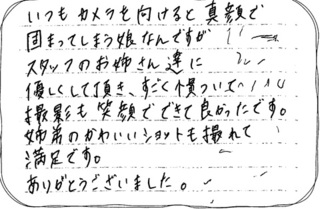 いつもカメラを向けると真顔で
固まってしまう娘なんですが
スタッフのお姉さん達に
優しくして頂き、すごく慣ついて
撮影も笑顔でできて良かったです。
姉弟のかわいいショットも撮れて
満足です。
ありがとうございました。